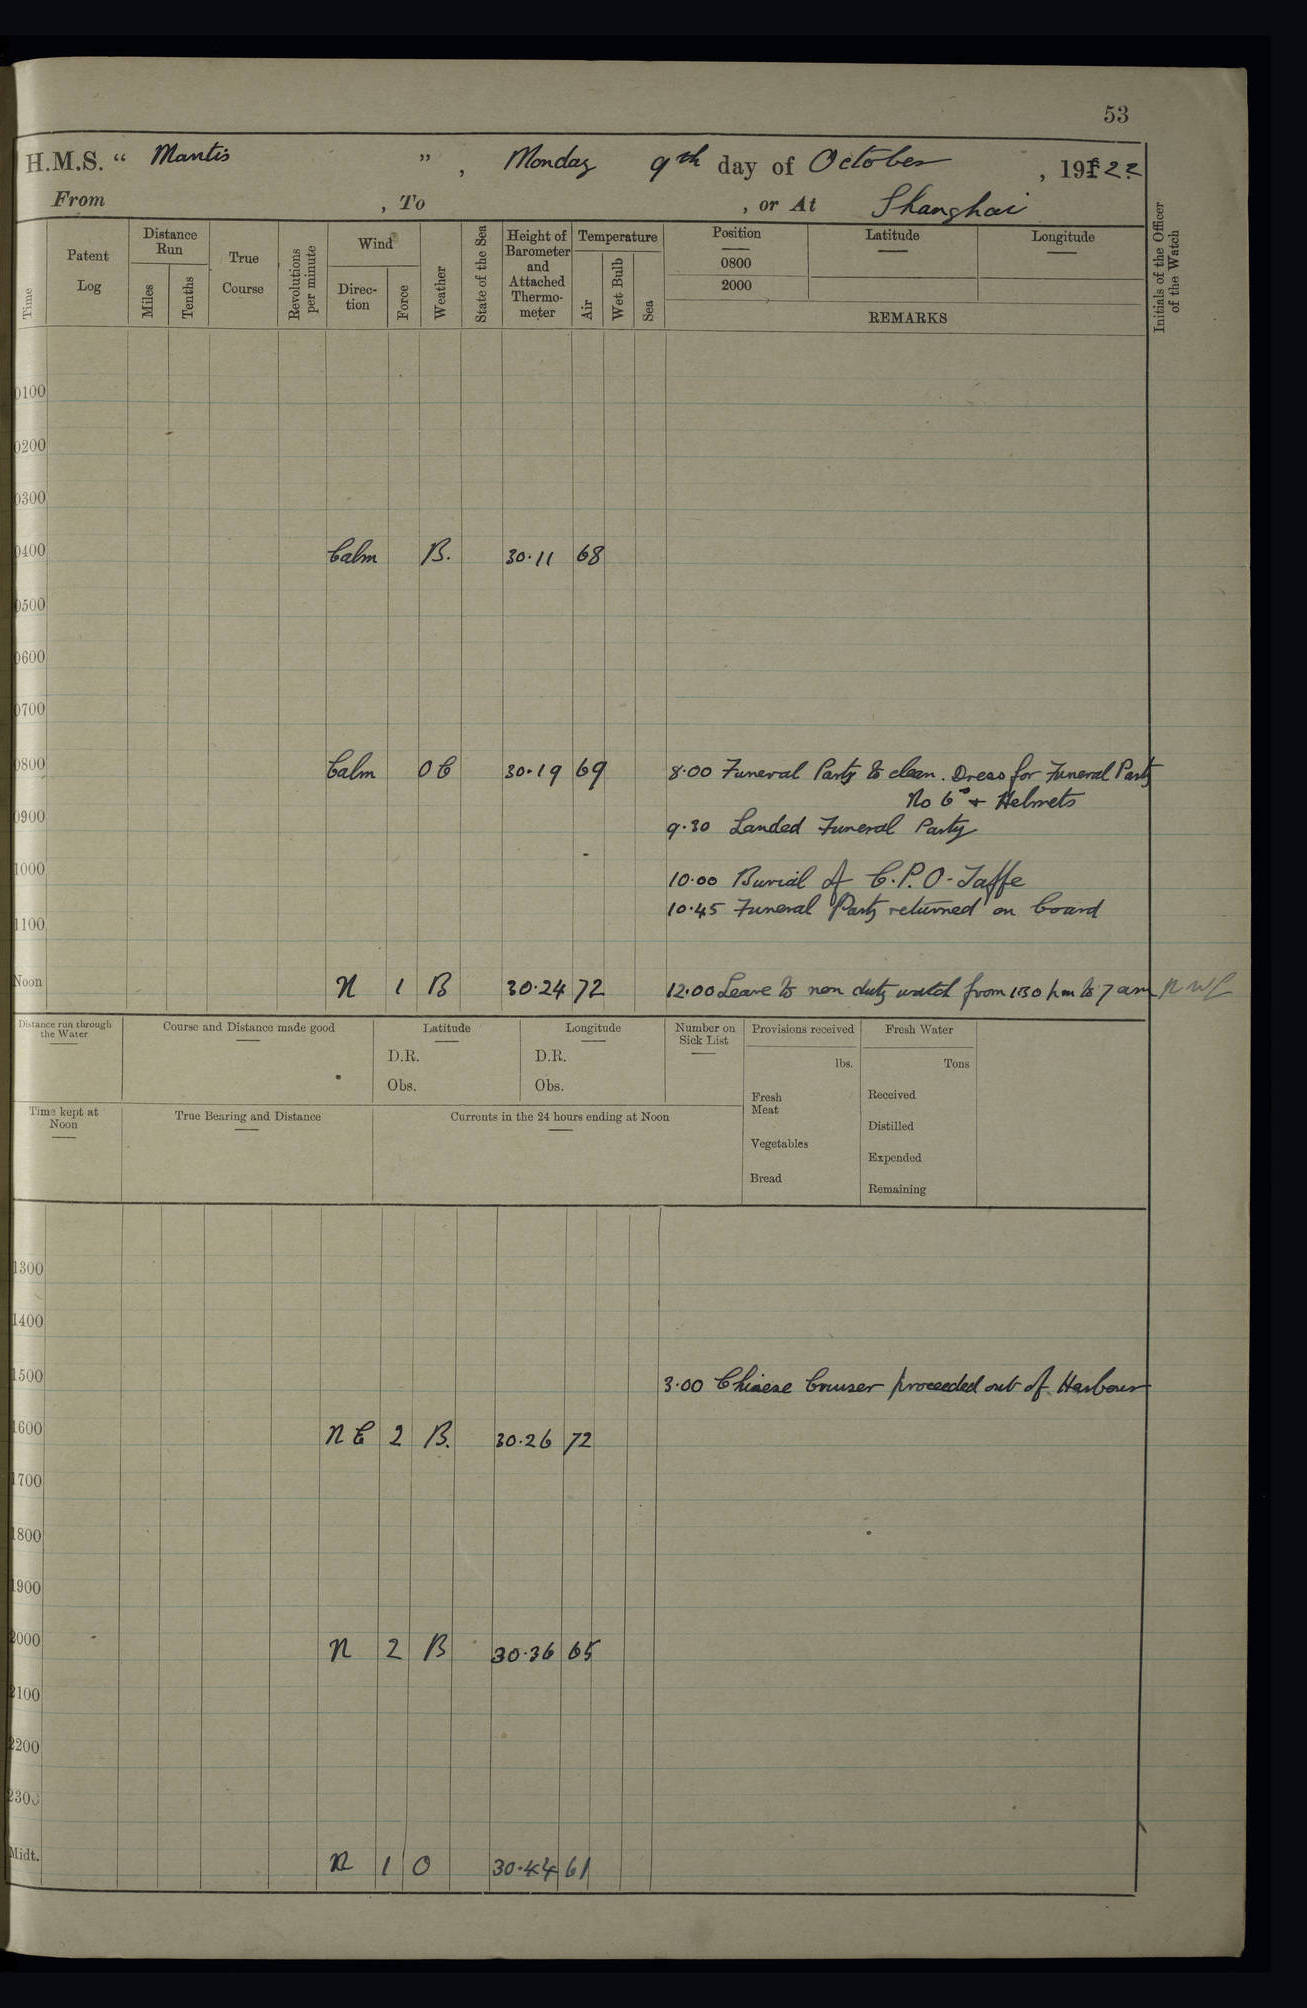 53
H.M.S. " Mantis " , Monday 9th day of October , 1922
From , To , or At Shanghai
Time
Patent Log
Distance Run
Miles
Tenths
True Course
Revolutions per minute
Wind
Direc-tion
Force
Weather
State of the Sea
Height of Barometer and Attached Thermo-meter
Temperature
Air
Wet Bulb
Sea
Position
0800
2000
Latitude
Longitude
REMARKS
Initials of the Officer of the Watch
0100
0200
0300
0400 Calm B. 30.11 68
0500
0600
0700
0800 Calm OC 30.19 69 8.00 Funeral Party to clean. Dress for Funeral Party
No 6s + Helmets
0900
9.30 Landed Funeral Party
1000 10.00 Burial of C.P.O. Jaffe
10.45 Funeral Party returned on board
1100
Noon N 1 B 30.24 72 12.00 Leave to non duty watch from 1.30 pm to 7 am
Distance run through the Water
Course and Distance made good
Latitude
D.R.
Obs.
Longitude
D.R.
Obs.
Number on Sick List
Provisions received
lbs.
Fresh Meat
Vegetables
Bread
Fresh Water
Tons
Received
Distilled
Expended
Remaining
Time kept at Noon
True Bearing and Distance
Currents in the 24 hours ending at Noon
1300
1400
1500 3.00 Chinese Cruiser proceeded out of Harbour
1600 NE 2 B. 30.26 72
1700
1800
1900
2000 N 2 B 30.36 65
2100
2200
2300
Midt. N 1 O 30.44 61